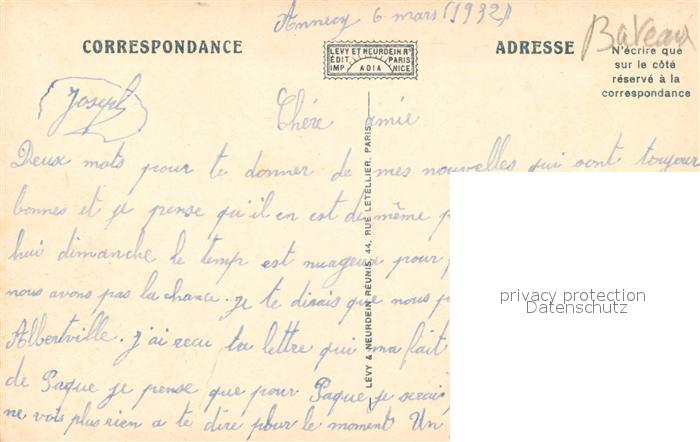 Annecy 6 mars (1932)
CORRESPONDANCE
LEVY ET NEURDEIN Rs
EDIT. PARIS
IMP. ADIA NICE
ADRESSE
N'écrire que
sur le côté
réservé à la
correspondance
Joseph
Chére amie
Deux mots pour te donner de mes nouvelles qui sont toujour
bonnes et je pense qu'il en est de même p
hui dimanche le temp est nuageux pour
nous avons pas la chance. je te dirais que nous p
Albertville. j'ai recu ta lettre qui ma fait
de Paque je pense que pour Paque je serai
ne vois plus rien a te dire pour le moment Un
LÉVY & NEURDEIN RÉUNIS, 44, RUE LETELLIER, PARIS
privacy protection
Datenschutz